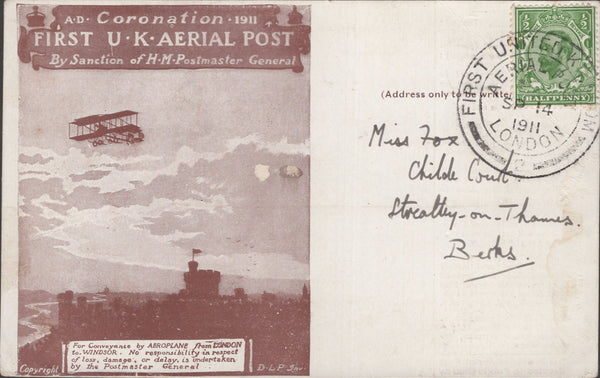 A·D· Coronation · 1911
FIRST U·K·AERIAL POST
By Sanction of H·M·Postmaster General
For Conveyance by AEROPLANE from LONDON
to WINDSOR · No responsibility in respect
of loss, damage, or delay, is undertaken
by the Postmaster General
Copyright
D·L·P
½
½
HALFPENNY
FIRST UNITED KINGDOM
AERIAL
SP 14
1911
LONDON
2
(Address only to be written
Miss Fox
Childe Court,
Streatley-on-Thames.
Berks.